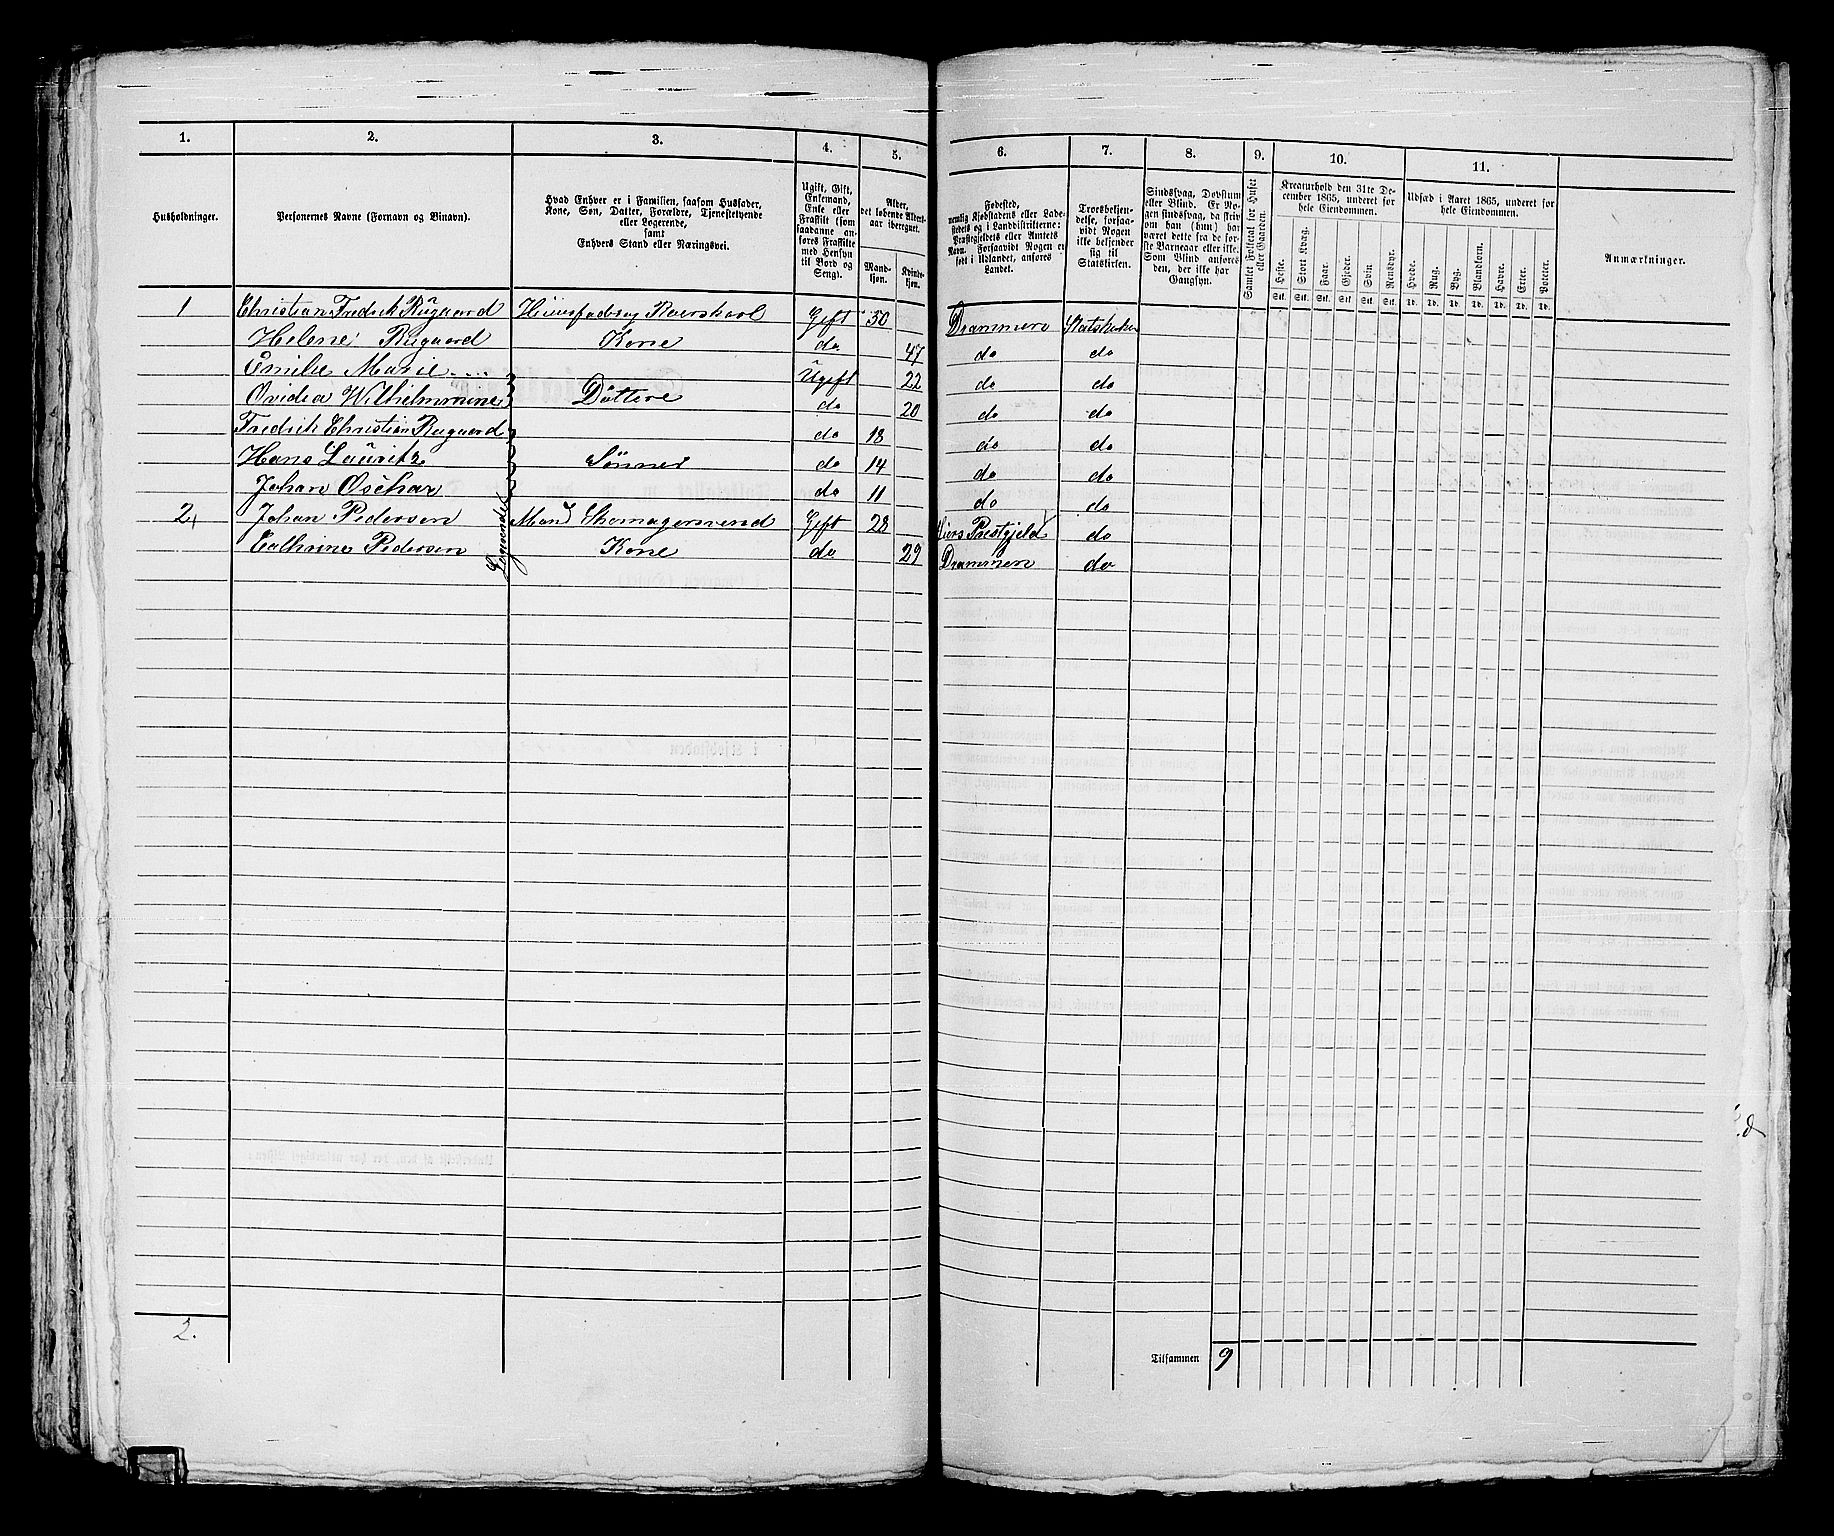 1. 2. 3. 4. 5. 6. 7. 8. 9. 10. 11.
Husholdninger.
Personernes Navne (Fornavn og Binavn).
Hvad Enhver er i Familien, saasom Husfader,
Kone, Søn, Datter, Forældre, Tjenestetyende
eller Logerende,
samt
Enhvers Stand eller Næringsvei.
Ugift, Gift,
Enkemand,
Enke eller
Fraskilt (som
saadanne an-
føres Fraskilte
med Hensyn
til Bord og
Seng).
Alder,
det løbende Alders-
aar iberegnet.
Mand-
kjøn.
Kvinde-
kjøn.
Fødested,
nemlig Kjøbstadens eller Lade-
stedets og i Landdistrikterne:
Præstegjeldets eller Amtets
Navn. Forsaavidt Nogen er
født i Udlandet, anføres
Landet.
Troesbekjen-
delse, forsaa-
vidt Nogen
ikke bekjender
sig til
Statskirken.
Sindssvag, Døvstum
eller Blind. Er No-
gen sindssvag, da skriv
om han (hun) har
været dette fra de før-
ste Barneaar eller ei.
Som Blind anføres
den, der ikke har
Gangsyn.
Samlet Folketal for Huset
eller Gaarden.
Kreaturhold den 31te De-
cember 1865, underet for
hele Eiendommen.
Heste. Stort Kvæg. Faar. Gjeder. Svin. Rensdyr.
Stk. Stk. Stk. Stk. Stk. Stk.
Udsæd i Aaret 1865, underet for
hele Eiendommen.
Hvede. Rug. Byg. Blandkorn. Havre. Erter. Poteter.
Td. Td. Td. Td. Td. Td. Td.
Anmærkninger.
1 Christian Fredrik Rugaard Huusfader og Gift 50 Drammen Statskirken
Helene Rugaard Kone do 47 do do
Emilie Marie Ugift 22 do do
Ovidea Wilhelmine Döttere do 20 do do
Fredrik Christian Rugaard do 18 do do
Hans Lauritz Sönner do 14 do do
Johan Oschar do 11 do do
2 Johan Pedersen Logerende Mand Skomagersvend Gift 28 Prestgjeld do
Cathrine Pedersen Kone do 29 Drammen do
2.
Tilsammen 9